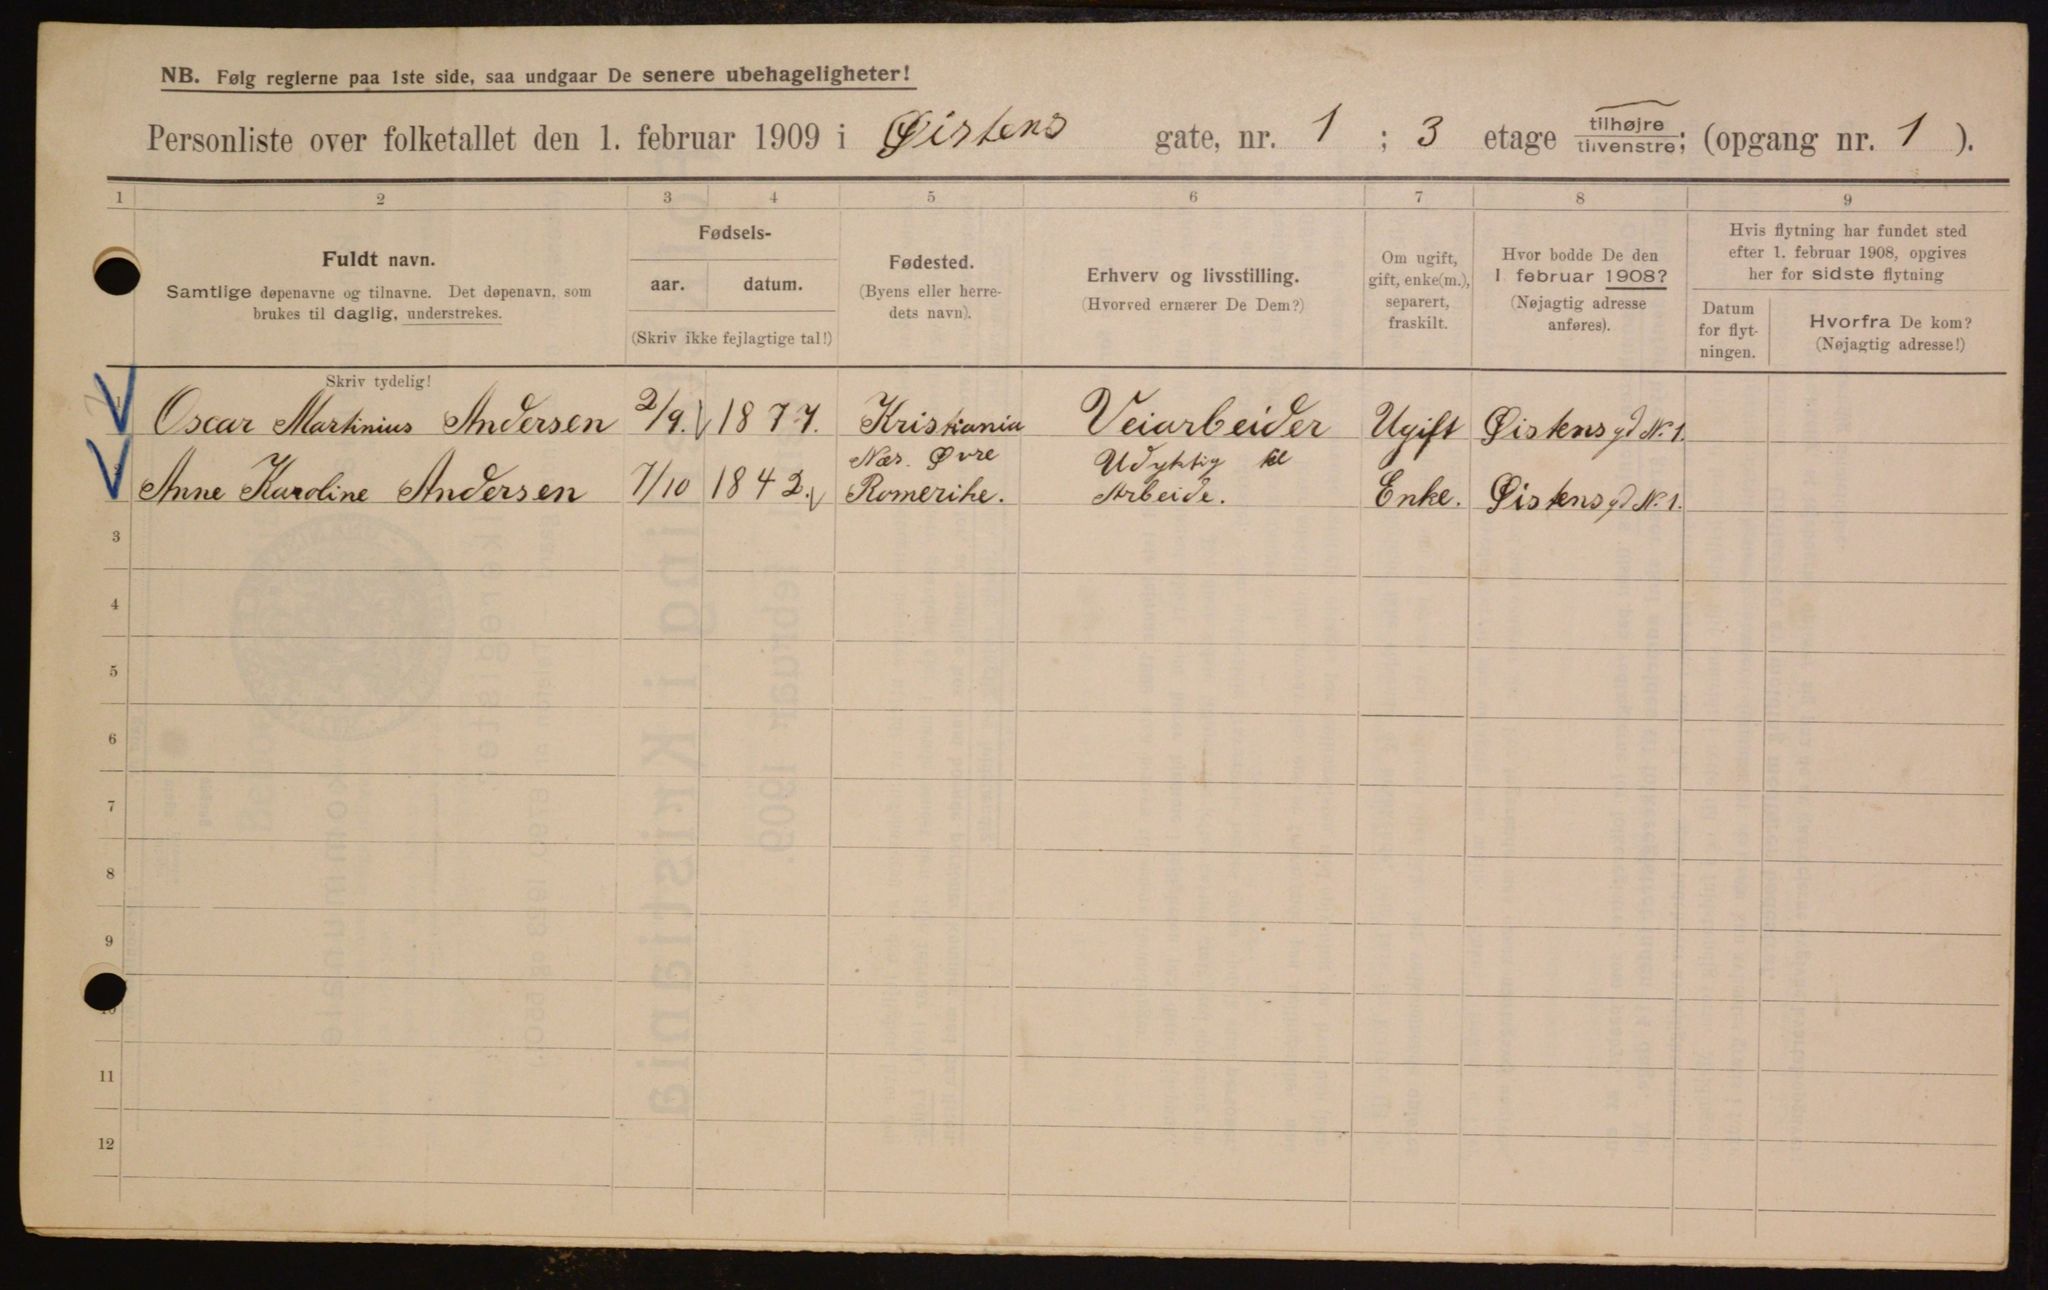 NB. Følg reglerne paa 1ste side, saa undgaar De senere ubehageligheter!
Personliste over folketallet den 1. februar 1909 i Øistens gate, nr. 1 ; 3 etage tilhøjre tilvenstre; (opgang nr. 1 ).
1 2 3 4 5 6 7 8 9
Fuldt navn.
Samtlige døpenavne og tilnavne. Det døpenavn, som
brukes til daglig, understrekes.
Skriv tydelig!
Fødsels-
aar. datum.
(Skriv ikke fejlagtige tal!)
Fødested.
(Byens eller herre-
dets navn).
Erhverv og livsstilling.
(Hvorved ernærer De Dem?)
Om ugift,
gift, enke(m.),
separert,
fraskilt.
Hvor bodde De den
1 februar 1908?
(Nøjagtig adresse
anføres).
Hvis flytning har fundet sted
efter 1. februar 1908, opgives
her for sidste flytning
Datum
for flyt-
ningen.
Hvorfra De kom?
(Nøjagtig adresse!)
Oscar Martinius Andersen 2/9. 1877. Kristiania Veiarbeider Ugift Øistensgd No. 1.
Nær. Øvre Udyktig til
Anne Karoline Andersen 7/10 1842. Romerike. Arbeide. Enke. Øistensgd No. 1.
3
4
5
6
7
8
9
10
11
12